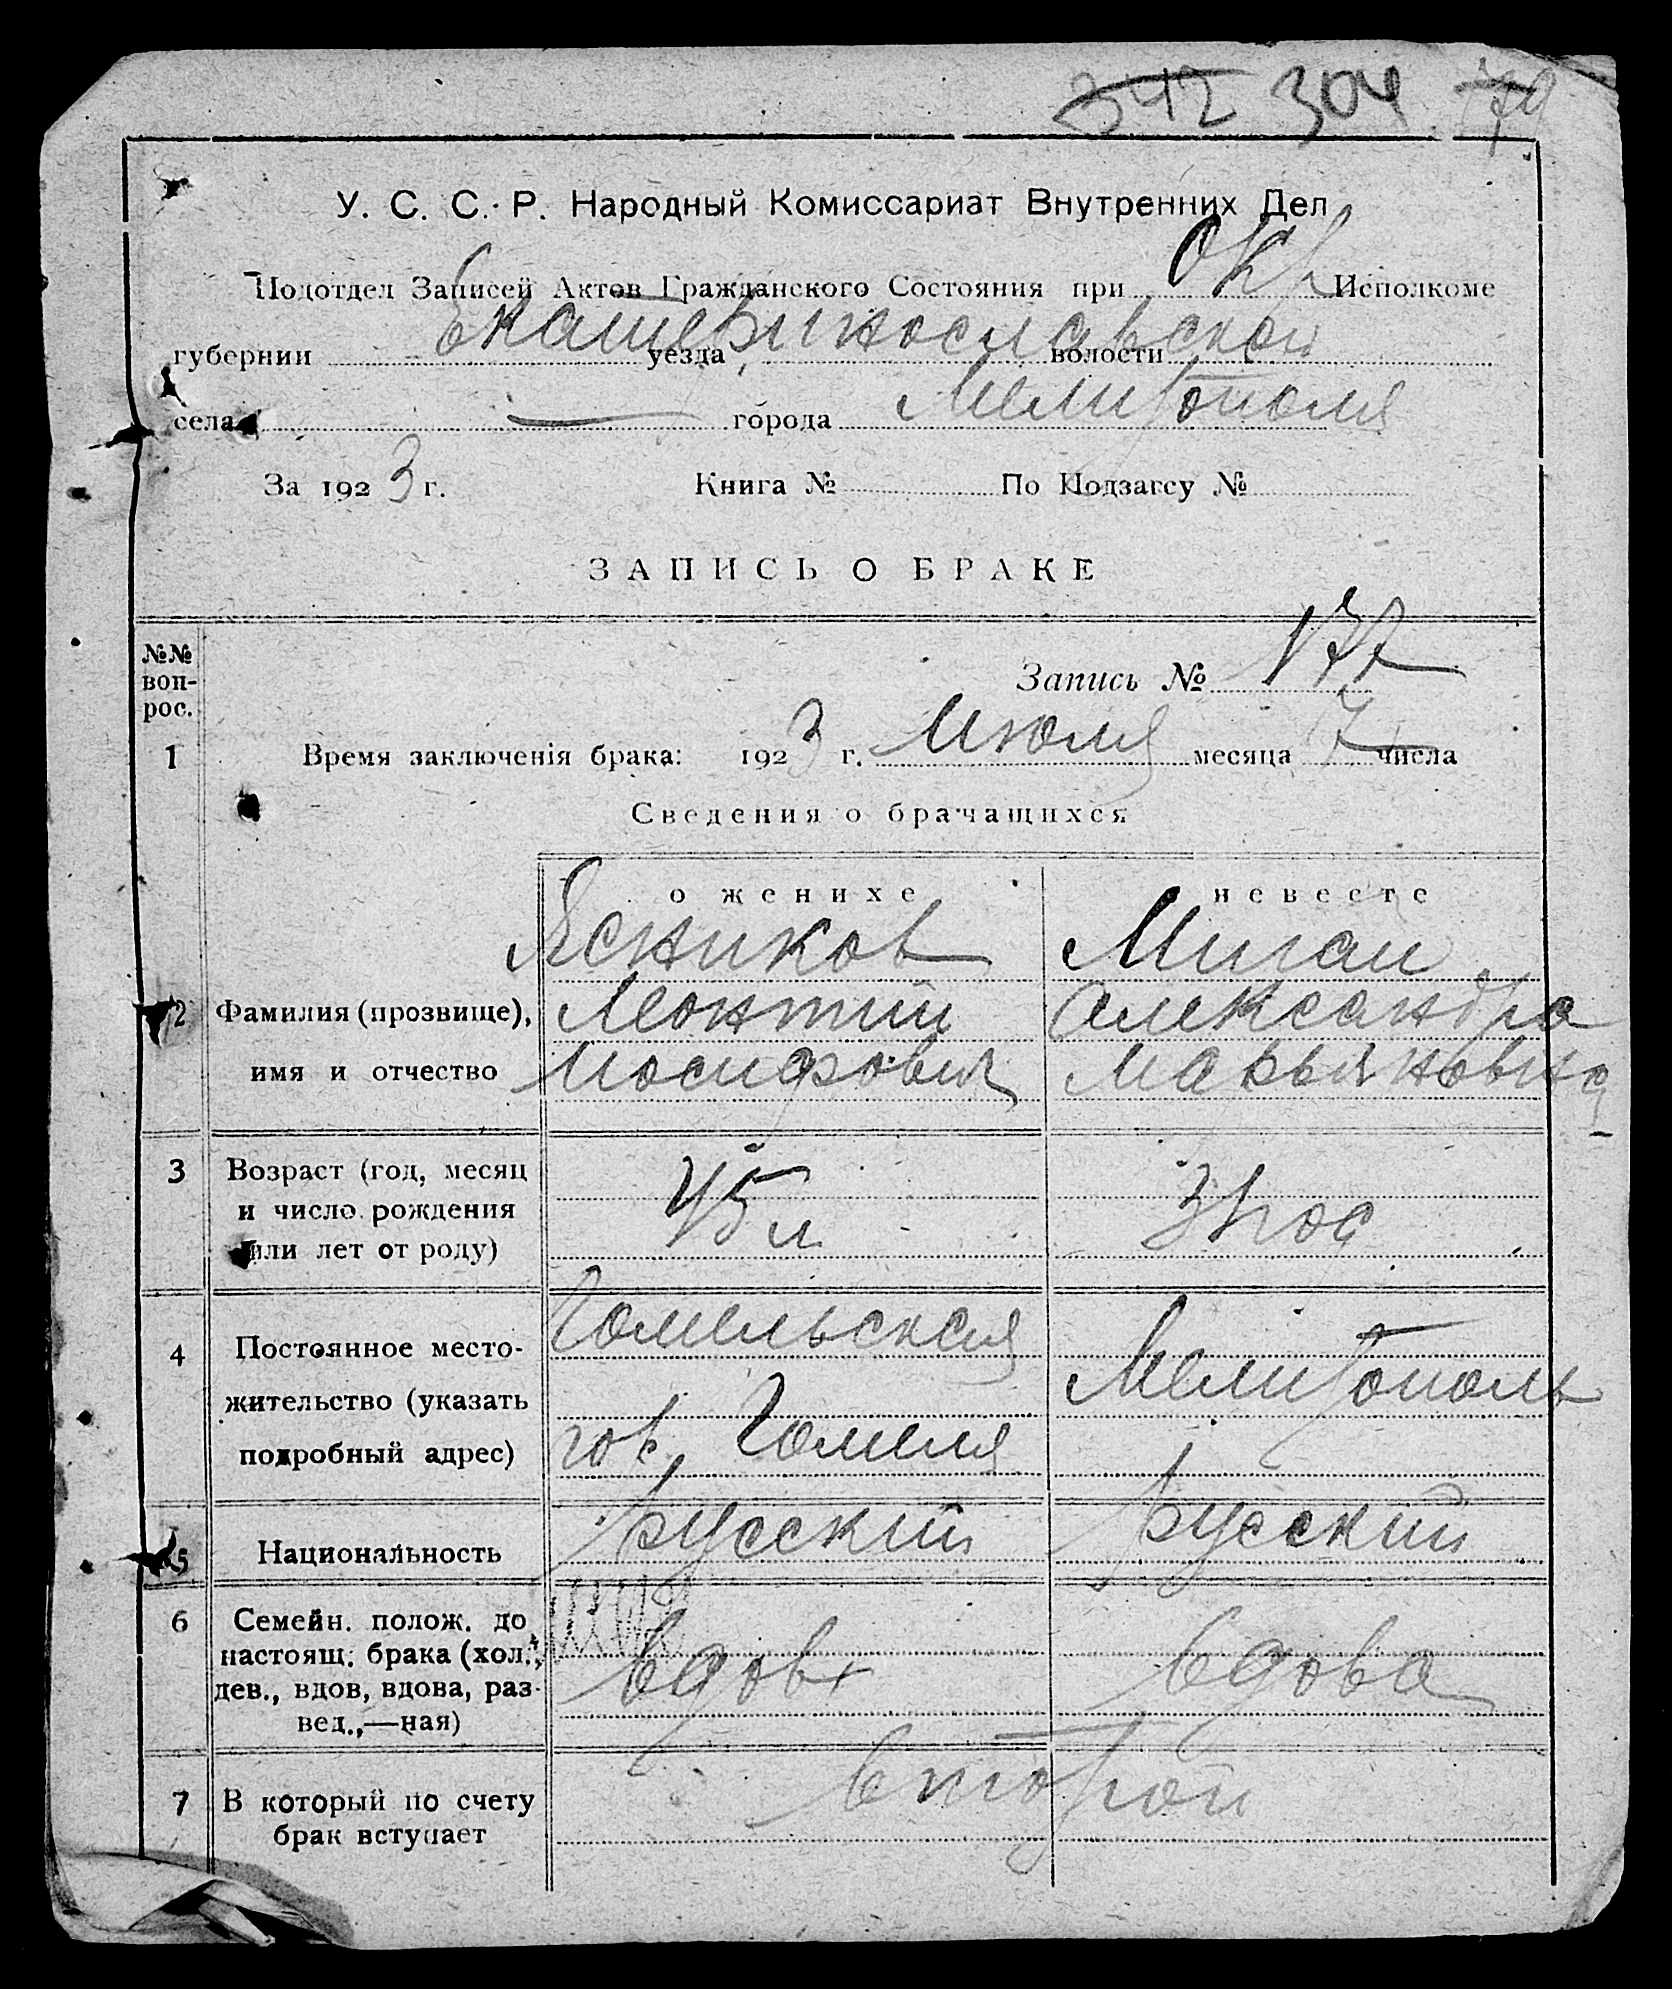 342 304
У. С. С. Р. Народный Комиссариат Внутренних Дел
Подотдел Записей Актов Гражданского Состояния при Окр Исполкоме
губернии Екатеринославской уезда волости
села — города Мелитополя
За 1923 г. Книга № По Подзагсу №
ЗАПИСЬ О БРАКЕ
№№ воп-рос.
Запись № 177
1 Время заключенія брака: 1923 г. Июля месяца 7 числа
Сведения о брачащихся
о женихе невесте
Ясников Мигаи
2 Фамилия (прозвище), Леонтий Александра
имя и отчество Иосифович Марьяновна
3 Возраст (год, месяц 45 л
и число рождения
или лет от роду)
Гомельская
4 Постоянное место- Мелитополь
жительство (указать
подробный адрес) гор. Гомеля
5 Национальность русский русский
6 Семейн. полож. до
настоящ. брака (хол., вдов вдова
дев., вдов, вдова, раз-
вед.,—ная)
7 В который по счету второй
брак вступает